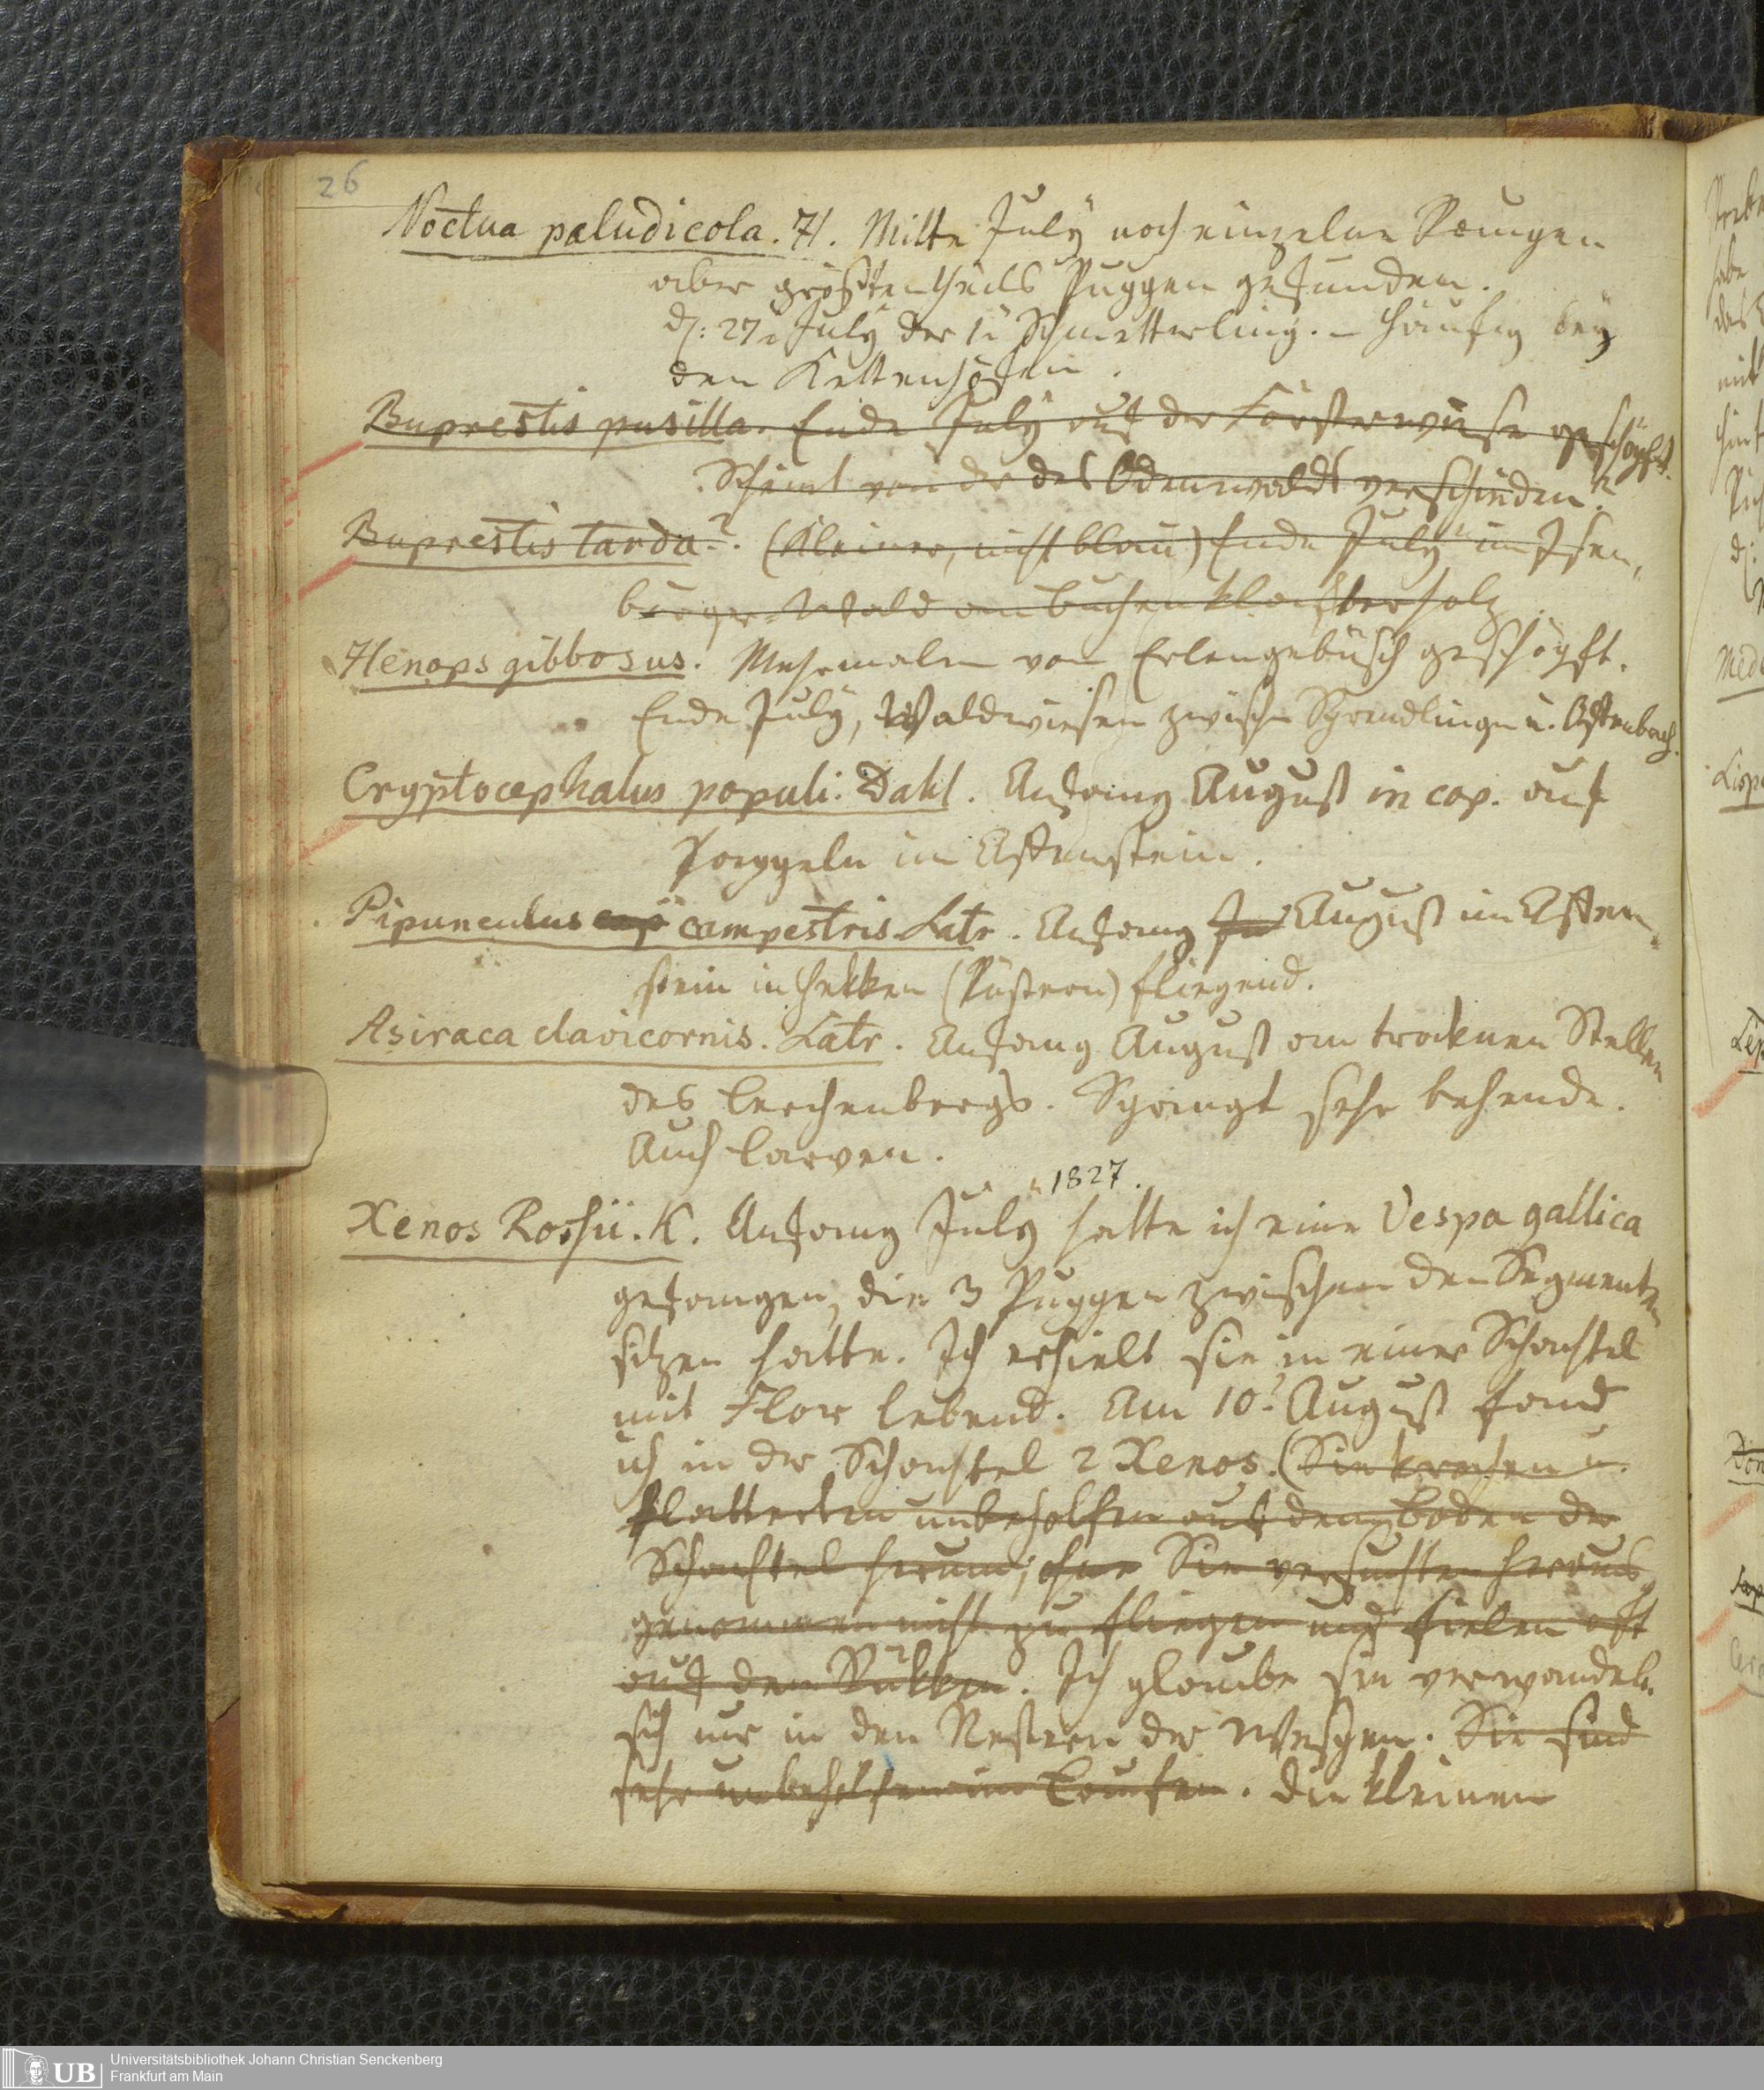 26
Noctua paludicola. H. Mitte July noch einzelne Raupen
aber größtentheils Puppen gefunden.
d: 27n July der 1e Schmetterling. – häufig bey
den Kettenhöfen.
Buprestis pusilla. Ende July auf der Försterwiese geschöpft.
Scheint von der des Odenwalds verschieden?
Buprestis tarda?. (Kleiner, nicht blau) Ende July im Isen-
burger Wald an Buchenklafterholz.
Henops gibbosus. Mehrmalen von Erlengebüsch geschöpft.
Ende July, Waldwiesen zwischen Sprendlingen u. Offenbach.
Cryptocephalus populi. Dahl. Anfang August in cop. auf
Pappeln im Affenstein.
Pipunculus cap campestris Latr. Anfang Ju August im Affen-
stein in Hekken (Rüstern) fliegend.
Asiraca clavicornis. Latr. Anfang August an trocknen Stellen
des Lerchenbergs. Springt sehr behende.
Auch Larven.
1827.
Xenos Rossii. K. Anfang July hatte ich eine Vespa gallica
gefangen, die 3 Puppen zwischen den Segmenten
sitzen hatte. Ich erhielt sie in einer Schachtel
mit Flor lebend. Am 10t August fand
ich in der Schachtel 2 Xenos. (Sie krochen u.
flatterten unbeholfen auf dem Boden der
Schachtel herum; ohne Sie versuchten heraus
genommen nicht zu fliegen und fielen oft
auf den Rükken. Ich glaube sie verwandeln
sich nur in den Nestern der Wespen. Sie sind
sehr unbeholfen im Laufen. Die kleinen
Universitätsbibliothek Johann Christian Senckenberg
Frankfurt am Main
UB